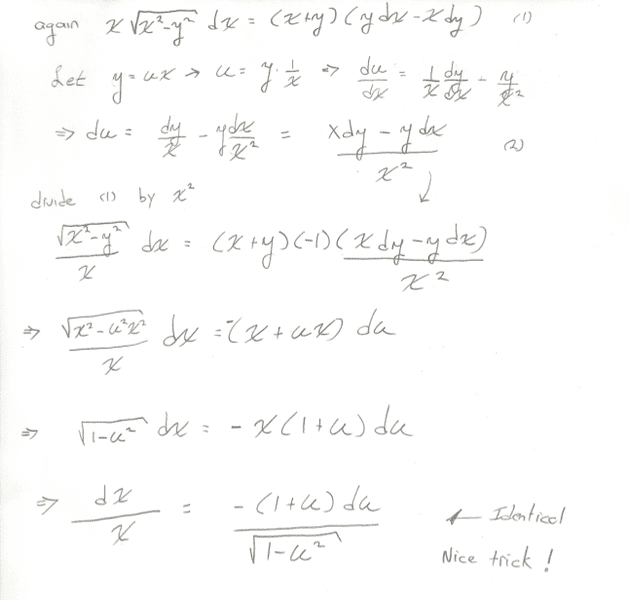 again x √(x²-y²) dx = (x+y)(ydx - xdy) (1)
Let y = ux → u = y · 1/x ⇒ du/dx = 1/x dy/dx - y/x²
⇒ du = dy/x - ydx/x² = (xdy - ydx)/x² (2)
divide (1) by x²
√(x²-y²)/x dx = (x+y)(-1)(xdy - ydx)/x²
⇒ √(x²-u²x²)/x dx = -(x+ux) du
⇒ √(1-u²) dx = -x(1+u)du
⇒ dx/x = -(1+u)du/√(1-u²) ← Identical
Nice trick!